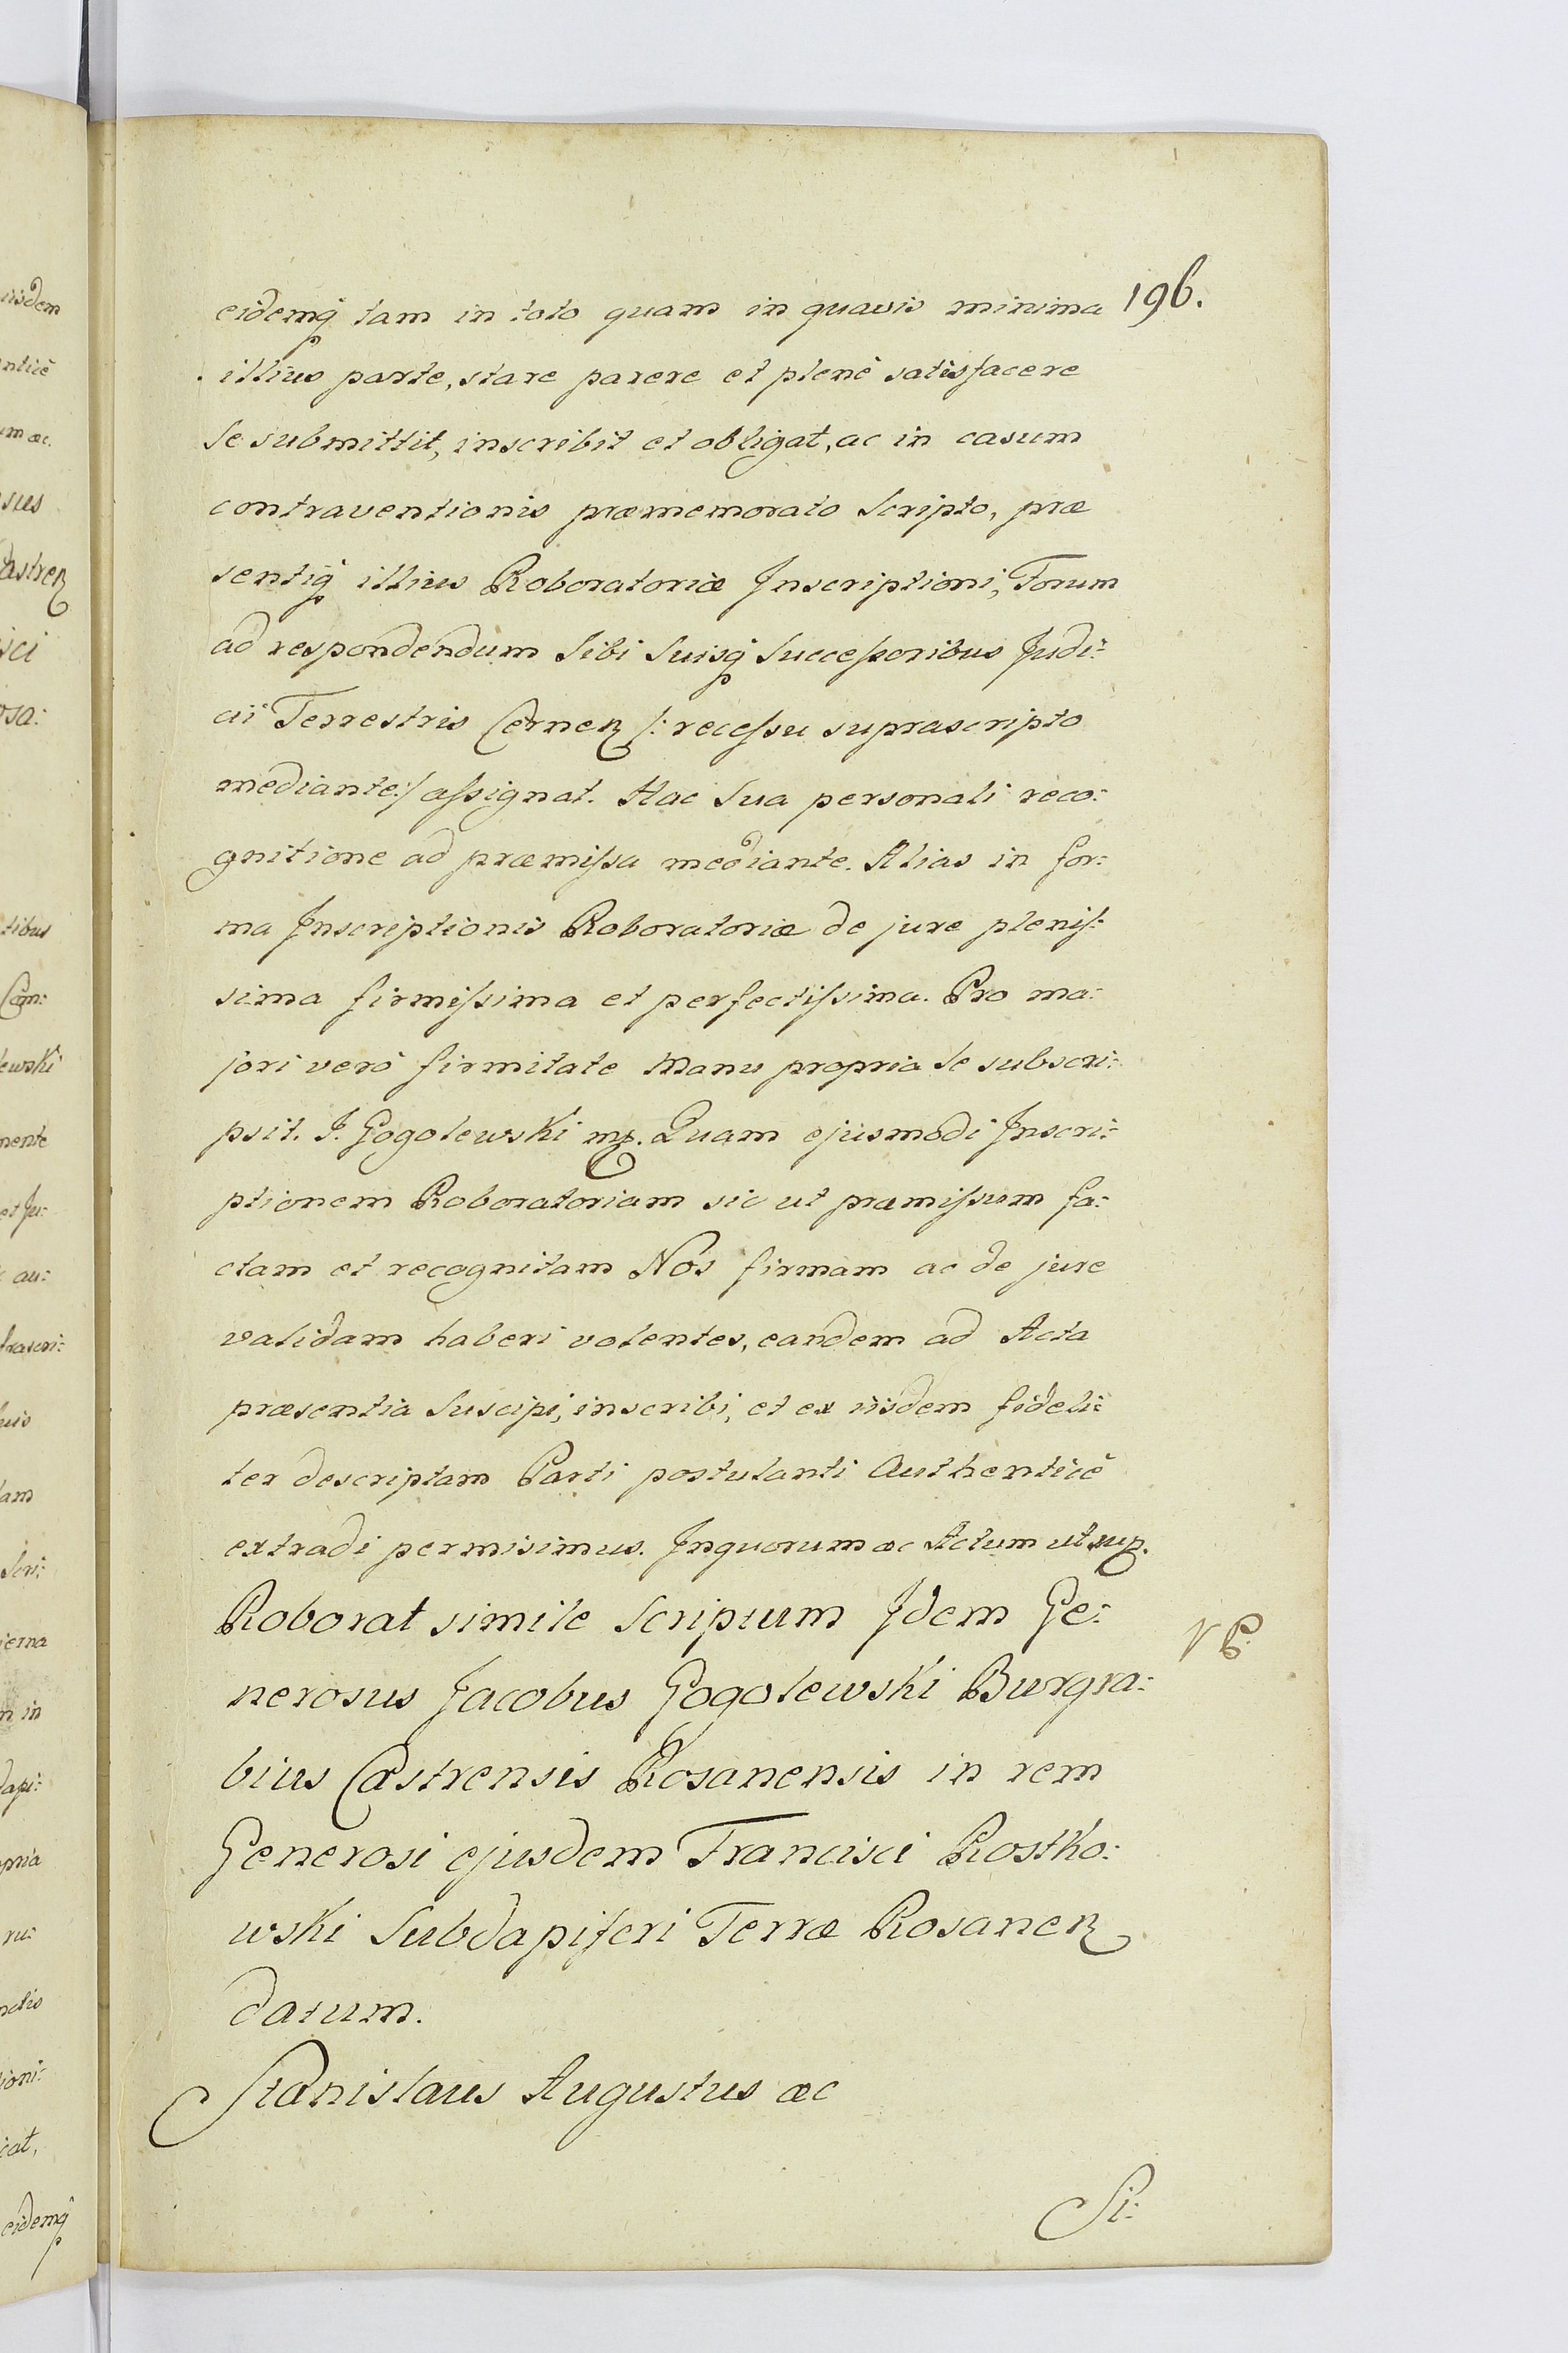 196.
eidemq̃ tam in toto quam in quavis minima
illius parte, stare parere et plenè satisfacere
Se submittit, inscribit et obligat, ac in casum
contraventionis præmemorato Scripto, præ
sentiq̃ illius Roboratoriæ Inscriptioni, Forum
ad respondendum Sibi Suisq̃ Successoribus Judi:
cii Terrestris Cernen /: recessu suprascripto
mediante:/ assignat. Hac Sua personali reco:
gnitione ad præmissa mediante. Alias in for:
ma Inscriptionis Roboratoriæ de jure plenis:
sima firmissima et perfectissima. Pro ma:
jori verò firmitate Manu propria Se subscri:
psit. J. Gogolewski mp. Quam ejusmodi Inscri:
ptionem Roboratoriam sic ut præmissum fa:
ctam et recognitam Nos firmam ac de jure
validam haberi volentes, eandem ad Acta
præsentia Suscipi, inscribi, et ex iisdem fideli:
ter descriptam Parti postulanti Authenticè
extradi permisimus. Inquorum æc Actum ut sup.
Roborat simile Scriptum Idem Ge:
nerosus Jacobus Gogolewski Burgra:
bius Castrensis Rosanensis in rem
Generosi ejusdem Francisci Rostko:
wski Subdapiferi Terræ Rosanen
datum.
Stanislaus Augustus æc
Si:
iisdem
nticè
um æc.
sus
Castren
isci
osa:
tibus
Con:
lewski
mente
et Ju:
au:
frascri:
huis
tam
Scri:
ierna
m in
dapi:
opria
ru:
nctis
tioni:
icat,
eidemq̃